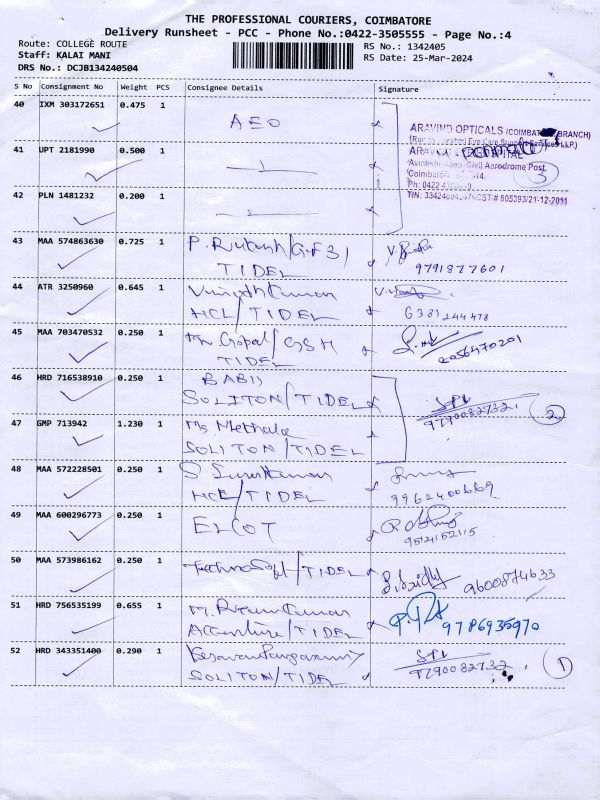 THE PROFESSIONAL COURIERS, COIMBATORE
Delivery Runsheet - PCC - Phone No.:0422-3505555 - Page No.:4
Route: COLLEGE ROUTE
RS No.: 1342405
Staff: KALAI MANI
RS Date: 25-Mar-2024
DRS No.: DCJB134240504
S No Consignment No Weight PCS Consignee Details Signature
40 IXM 303172651 0.475 1 AEO
ARAVIND OPTICALS (COIMBATORE BRANCH)
41 UPT 2181990 0.500 1
Civil Aerodrome Post,
3
42 PLN 1481232 0.200 1
43 MAA 574863630 0.725 1
TIDEL 9791877601
44 ATR 3250960 0.645 1 Vinoth Kumar
HCL/TIDEL 6381244478
45 MAA 703470532 0.250 1 Mr Gopal/GSH
TIDEL 2056470201
46 HRD 716538910 0.250 1 BABU
SOLITON/TIDEL 2
47 GMP 713942 1.230 1 Ms Methala
SOLITON/TIDEL
48 MAA 572228501 0.250 1 S Suresh Kumar
HCL/TIDEL 9962400669
49 MAA 600296773 0.250 1 ELCOT
9524152115
50 MAA 573986162 0.250 1 Technosoft/TIDEL 9600874633
51 HRD 756535199 0.655 1 M. Prem Kumar
Accenture/TIDEL 9786935970
52 HRD 343351400 0.290 1
SOLITON/TIDEL 1